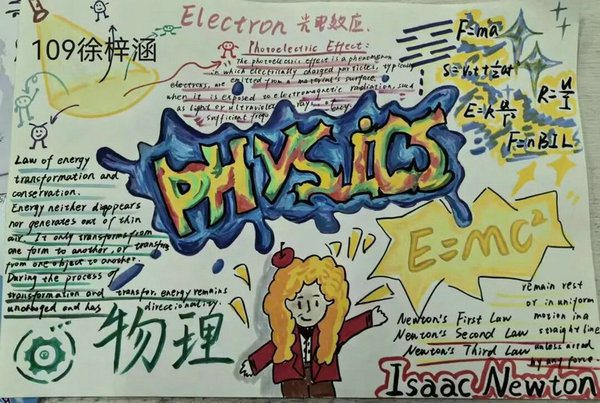 Electron 光电效应.
109徐梓涵
Photoelectric Effect:
The photoelectric effect is a phenomenon
in which electrically charged particles, typically
electrons, are emitted from a material's surface
when it is exposed to electromagnetic radiation, such
as light or ultraviolet rays of
sufficient
F=ma
R=U/I
F=nBIL
PHYSICS
Law of energy
transformation and
conservation.
Energy neither disappears
nor generates out of thin
air. It only transform from
one form to another, or transfers
from one object to another.
During the process of
transformation and transfer, energy remains
unchanged and has directionality.
E=mc²
物理
Newton's First Law
Newton's Second Law
Newton's Third Law
remain rest
or in uniform
motion in a
straight line
unless acted
by any force.
Isaac Newton